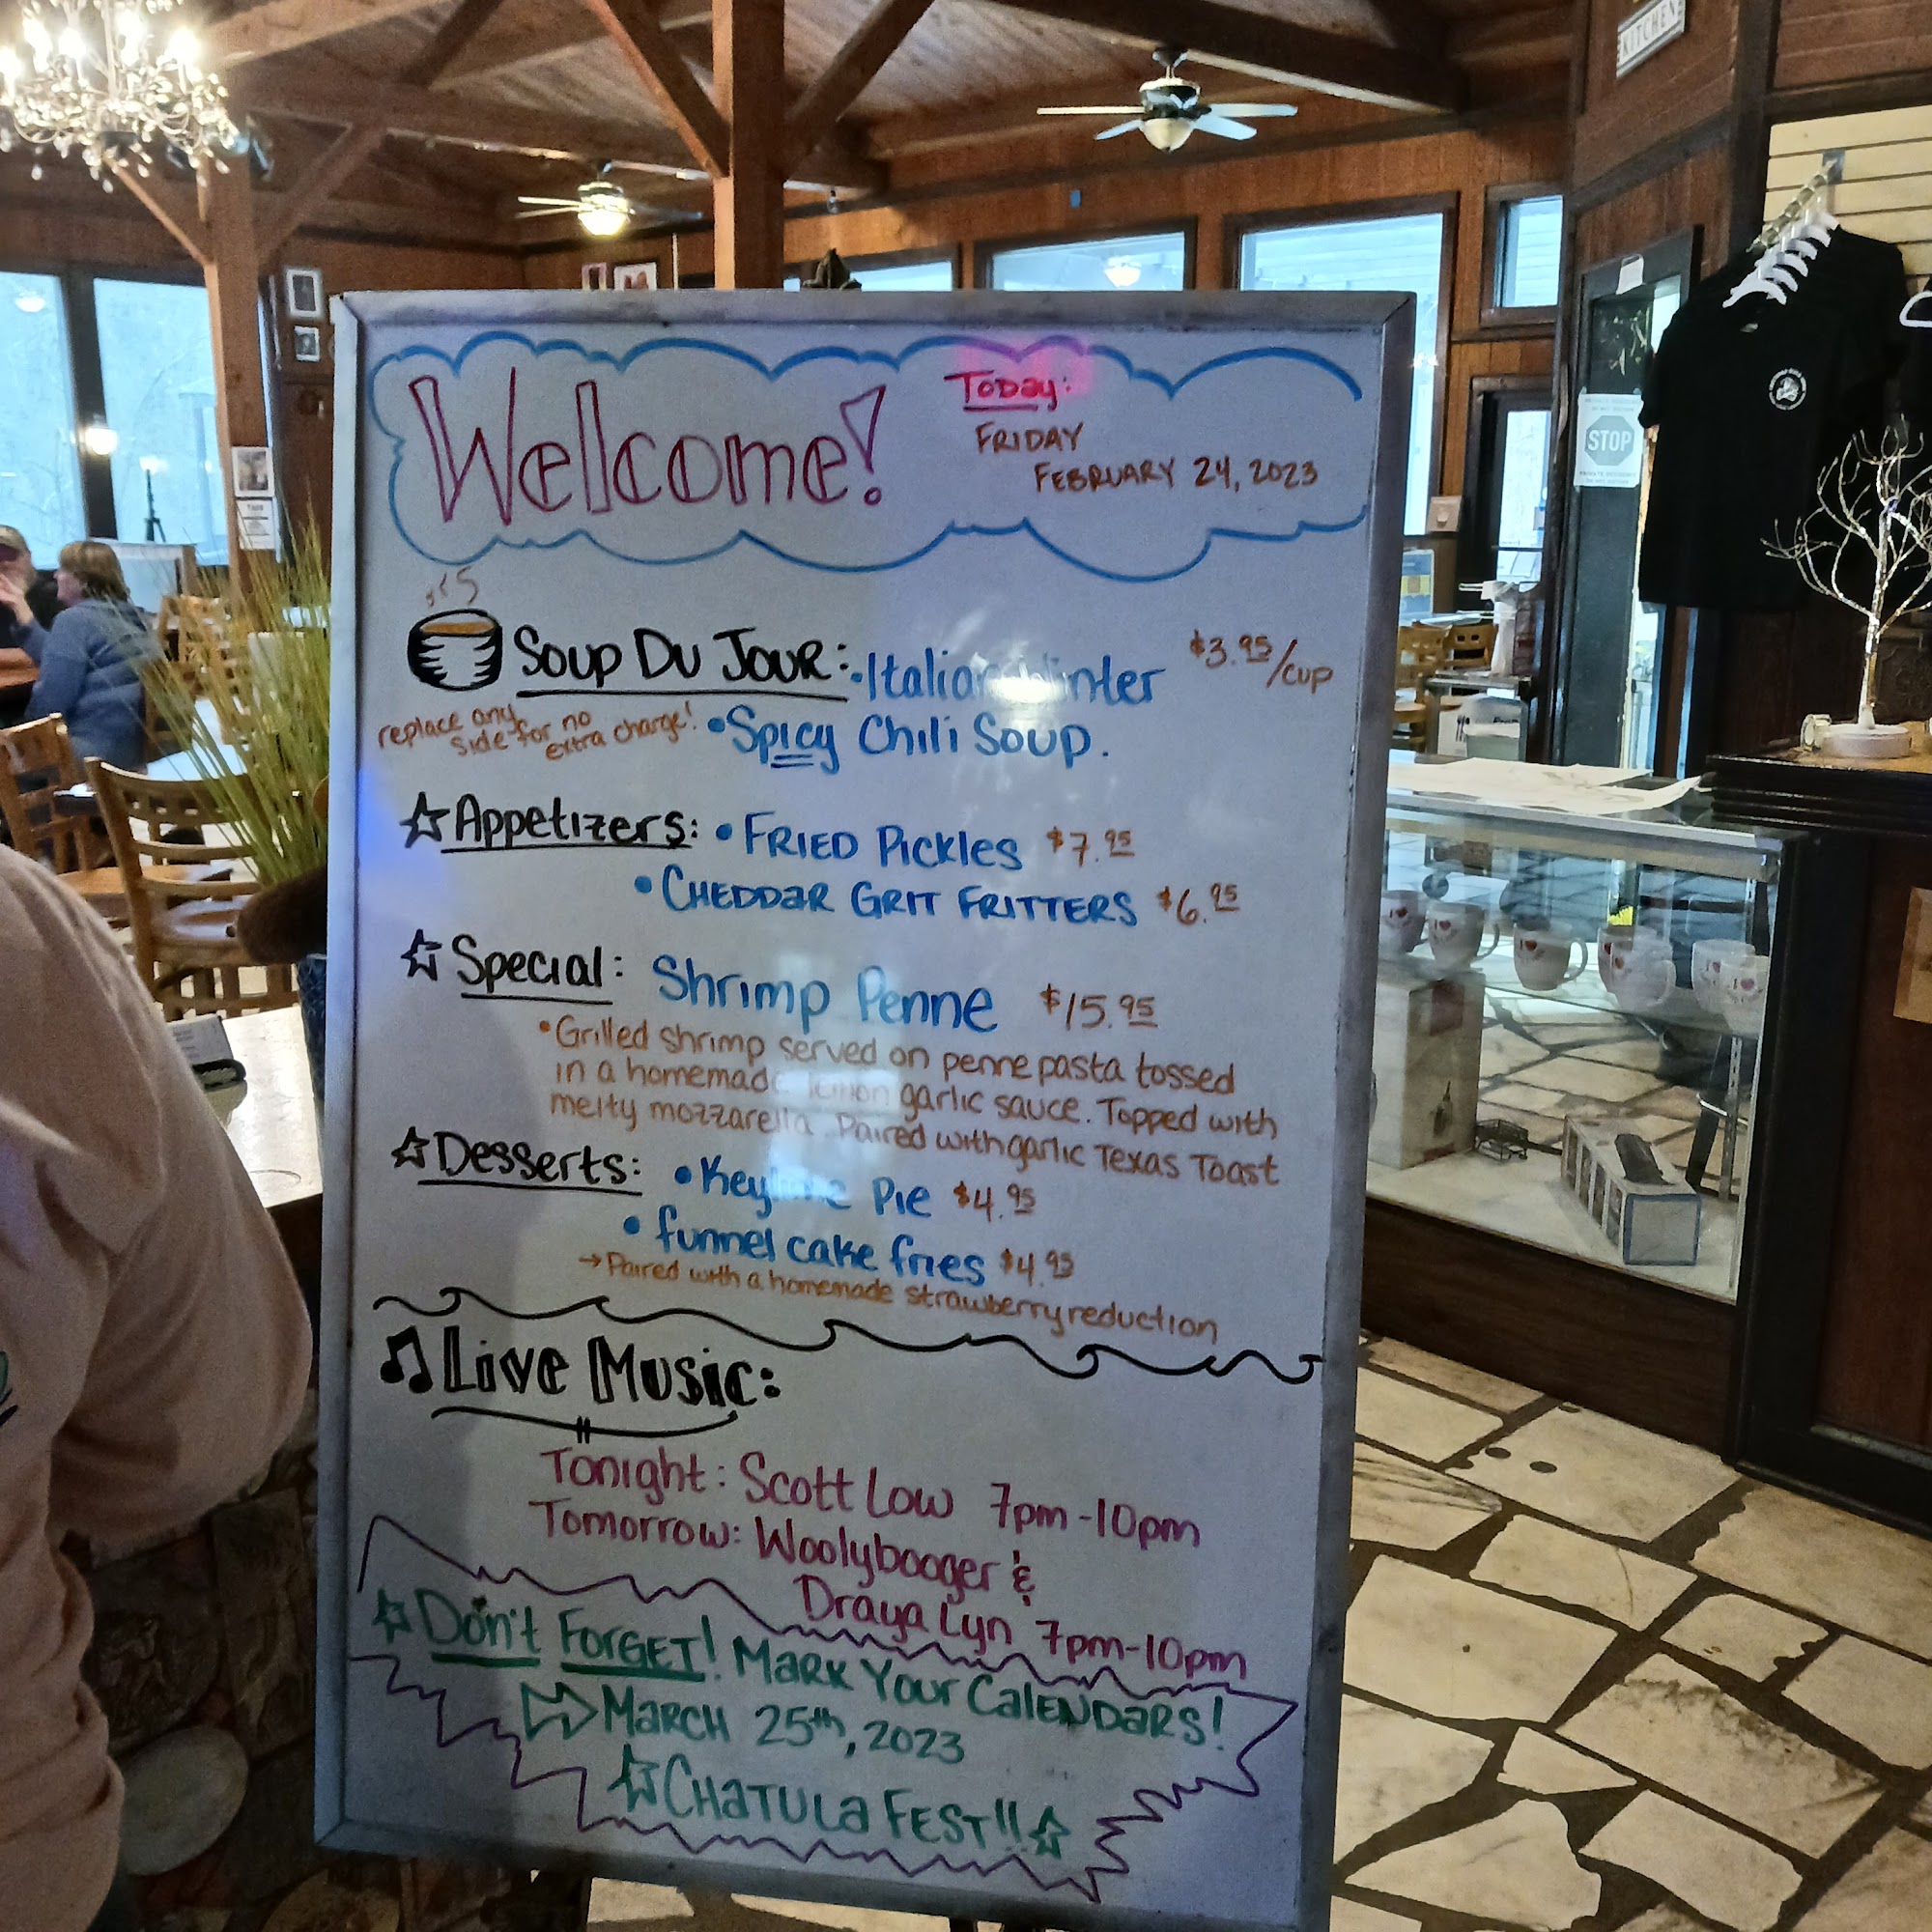 KITCHEN
Welcome!
Today:
FRIDAY
FEBRUARY 24, 2023
STOP
Soup Du Jour: • Italian Winter $3.95/cup
replace any side for no extra charge!
• Spicy Chili Soup.
Appetizers: • FRIED Pickles $7.95
• CHEDDAR GRIT FRITTERS $6.95
Special: Shrimp Penne $15.95
• Grilled shrimp served on penne pasta tossed
in a homemade lemon garlic sauce. Topped with
melty mozzarella. Paired with garlic Texas Toast
Desserts: • Keylime Pie $4.95
• funnel cake fries $4.95
→ Paired with a homemade strawberry reduction
Live Music:
Tonight: Scott Low 7pm-10pm
Tomorrow: Woolybooger &
Draya Lyn 7pm-10pm
Don't Forget! Mark Your Calendars!
March 25th, 2023
Chatula Fest!!